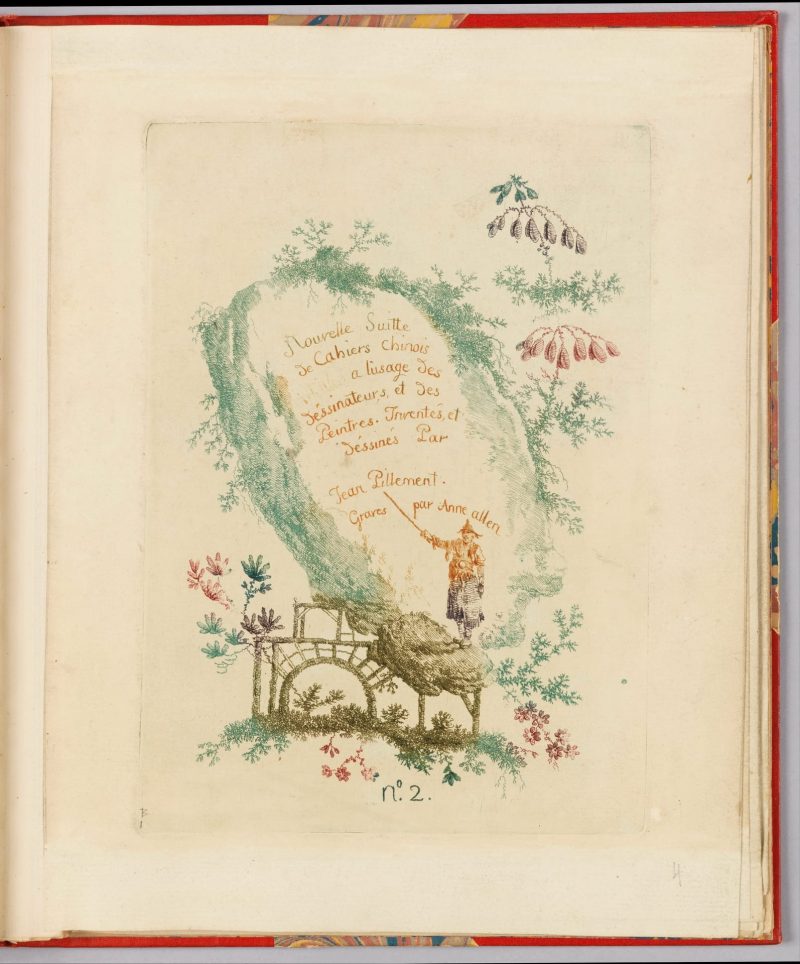 Nouvelle Suitte
de Cahiers chinois
a l'usage des
déssinateurs, et des
Peintres. Inventés, et
déssinés Par
Jean Pillement.
Gravés par Anne allen
n.º 2.
B
1
4